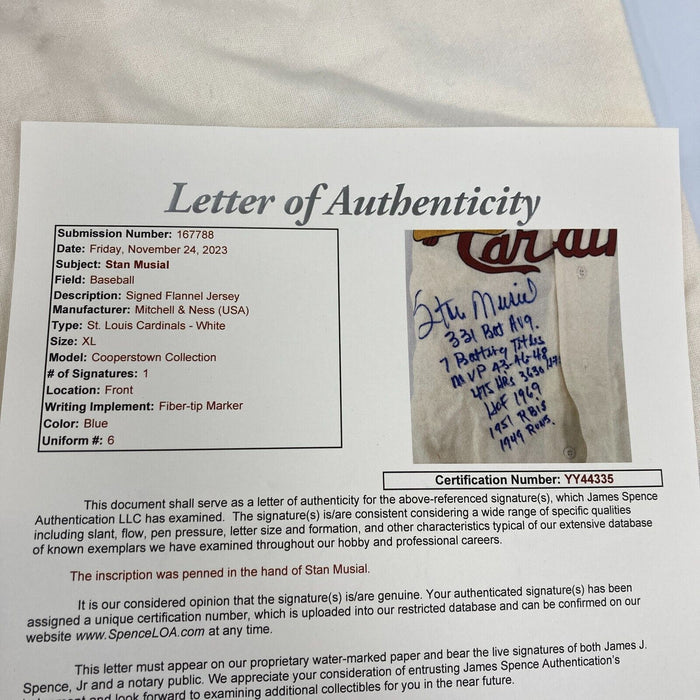 Letter of Authenticity
Submission Number: 167788
Date: Friday, November 24, 2023
Subject: Stan Musial
Field: Baseball
Description: Signed Flannel Jersey
Manufacturer: Mitchell & Ness (USA)
Type: St. Louis Cardinals - White
Size: XL
Model: Cooperstown Collection
# of Signatures: 1
Location: Front
Writing Implement: Fiber-tip Marker
Color: Blue
Uniform #: 6
Stan Musial
331 Bat Avg.
7 Batting Titles
MVP 43-46-48
475 HRs 3630 Hits
HOF 1969
1951 RBIs
1949 Runs.
Certification Number: YY44335
This document shall serve as a letter of authenticity for the above-referenced signature(s), which James Spence
Authentication LLC has examined. The signature(s) is/are consistent considering a wide range of specific qualities
including slant, flow, pen pressure, letter size and formation, and other characteristics typical of our extensive database
of known exemplars we have examined throughout our hobby and professional careers.
The inscription was penned in the hand of Stan Musial.
It is our considered opinion that the signature(s) is/are genuine. Your authenticated signature(s) has been
assigned a unique certification number, which is uploaded into our restricted database and can be confirmed on our
website www.SpenceLOA.com at any time.
This letter must appear on our proprietary water-marked paper and bear the live signatures of both James J.
Spence, Jr and a notary public. We appreciate your consideration of entrusting James Spence Authentication's
and look forward to examining additional collectibles for you in the near future.